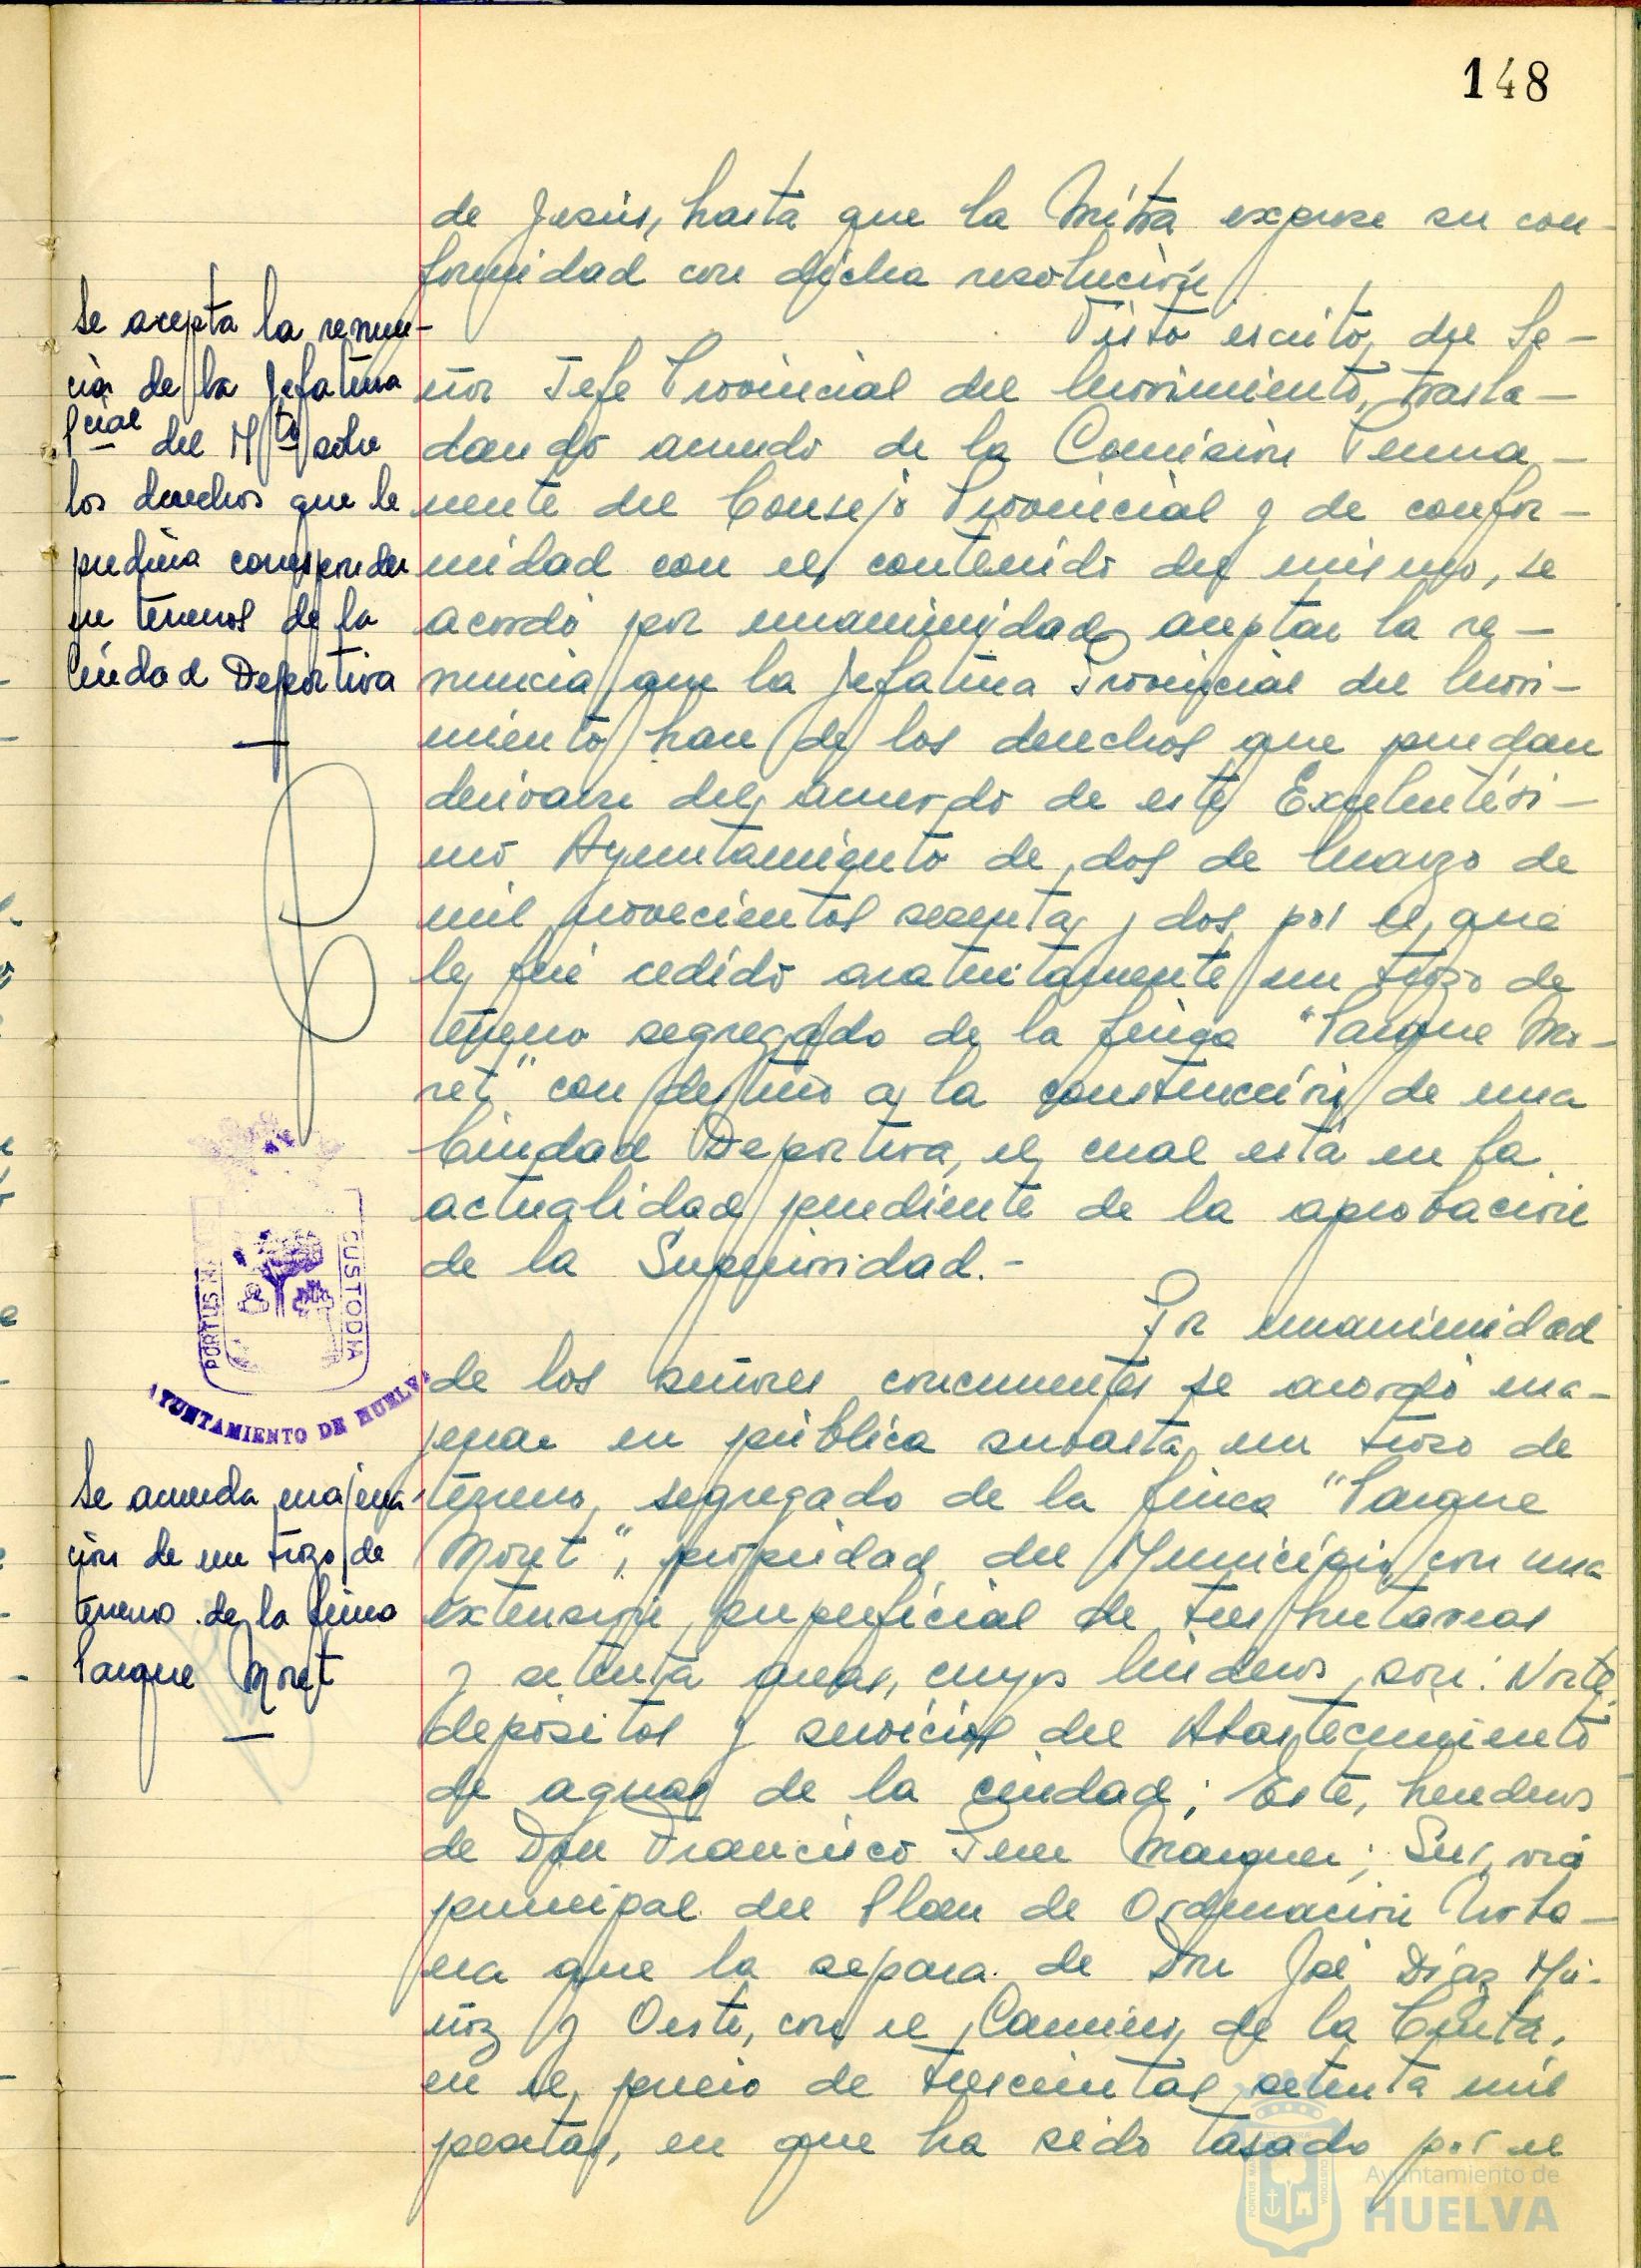 148
de Jesús, hasta que la Mitra exprese su con-
formidad con dicha resolución
Se acepta la renun-
cia de la Jefatura
Pcial del Mto sobre
los derechos que le
pudiera corresponder
en terrenos de la
Ciudad Deportiva
Visto escrito del Se-
ñor Jefe Provincial del Movimiento, trasla-
dando acuerdo de la Comisión Perma-
nente del Consejo Provincial y de confor-
midad con el contenido del mismo, se
acordó por unanimidad aceptar la re-
nuncia que la Jefatura Provincial del Movi-
miento hace de los derechos que puedan
derivarse del acuerdo de este Excelentísi-
mo Ayuntamiento de dos de Marzo de
mil novecientos sesenta y dos, por el que
le fué cedido gratuitamente un trozo de
terreno segregado de la finca "Parque Mo-
ret" con destino a la construcción de una
Ciudad Deportiva, el cual está en la
actualidad pendiente de la aprobación
de la Superioridad.-
PORTUS MARIS CUSTODIA
AYUNTAMIENTO DE HUELVA
Se acuerda enajena-
ción de un trozo de
terreno de la finca
Parque Moret
Por unanimidad
de los señores concurrentes se acordó ena-
jenar en pública subasta un trozo de
terreno, segregado de la finca "Parque
Moret", propiedad del Municipio, con una
extensión superficial de tres hectáreas
y setenta áreas, cuyos linderos son: Norte,
depósitos y servicios del Abastecimiento
de aguas de la ciudad; Este, herederos
de Don Francisco Márquez; Sur, vía
principal del Plan de Ordenación Urba-
na que la separa de Don José Díaz Mu-
ñoz y Oeste, con el Camino de la Cinta,
en el precio de trescientas setenta mil
pesetas, en que ha sido tasado por el
Ayuntamiento de
HUELVA